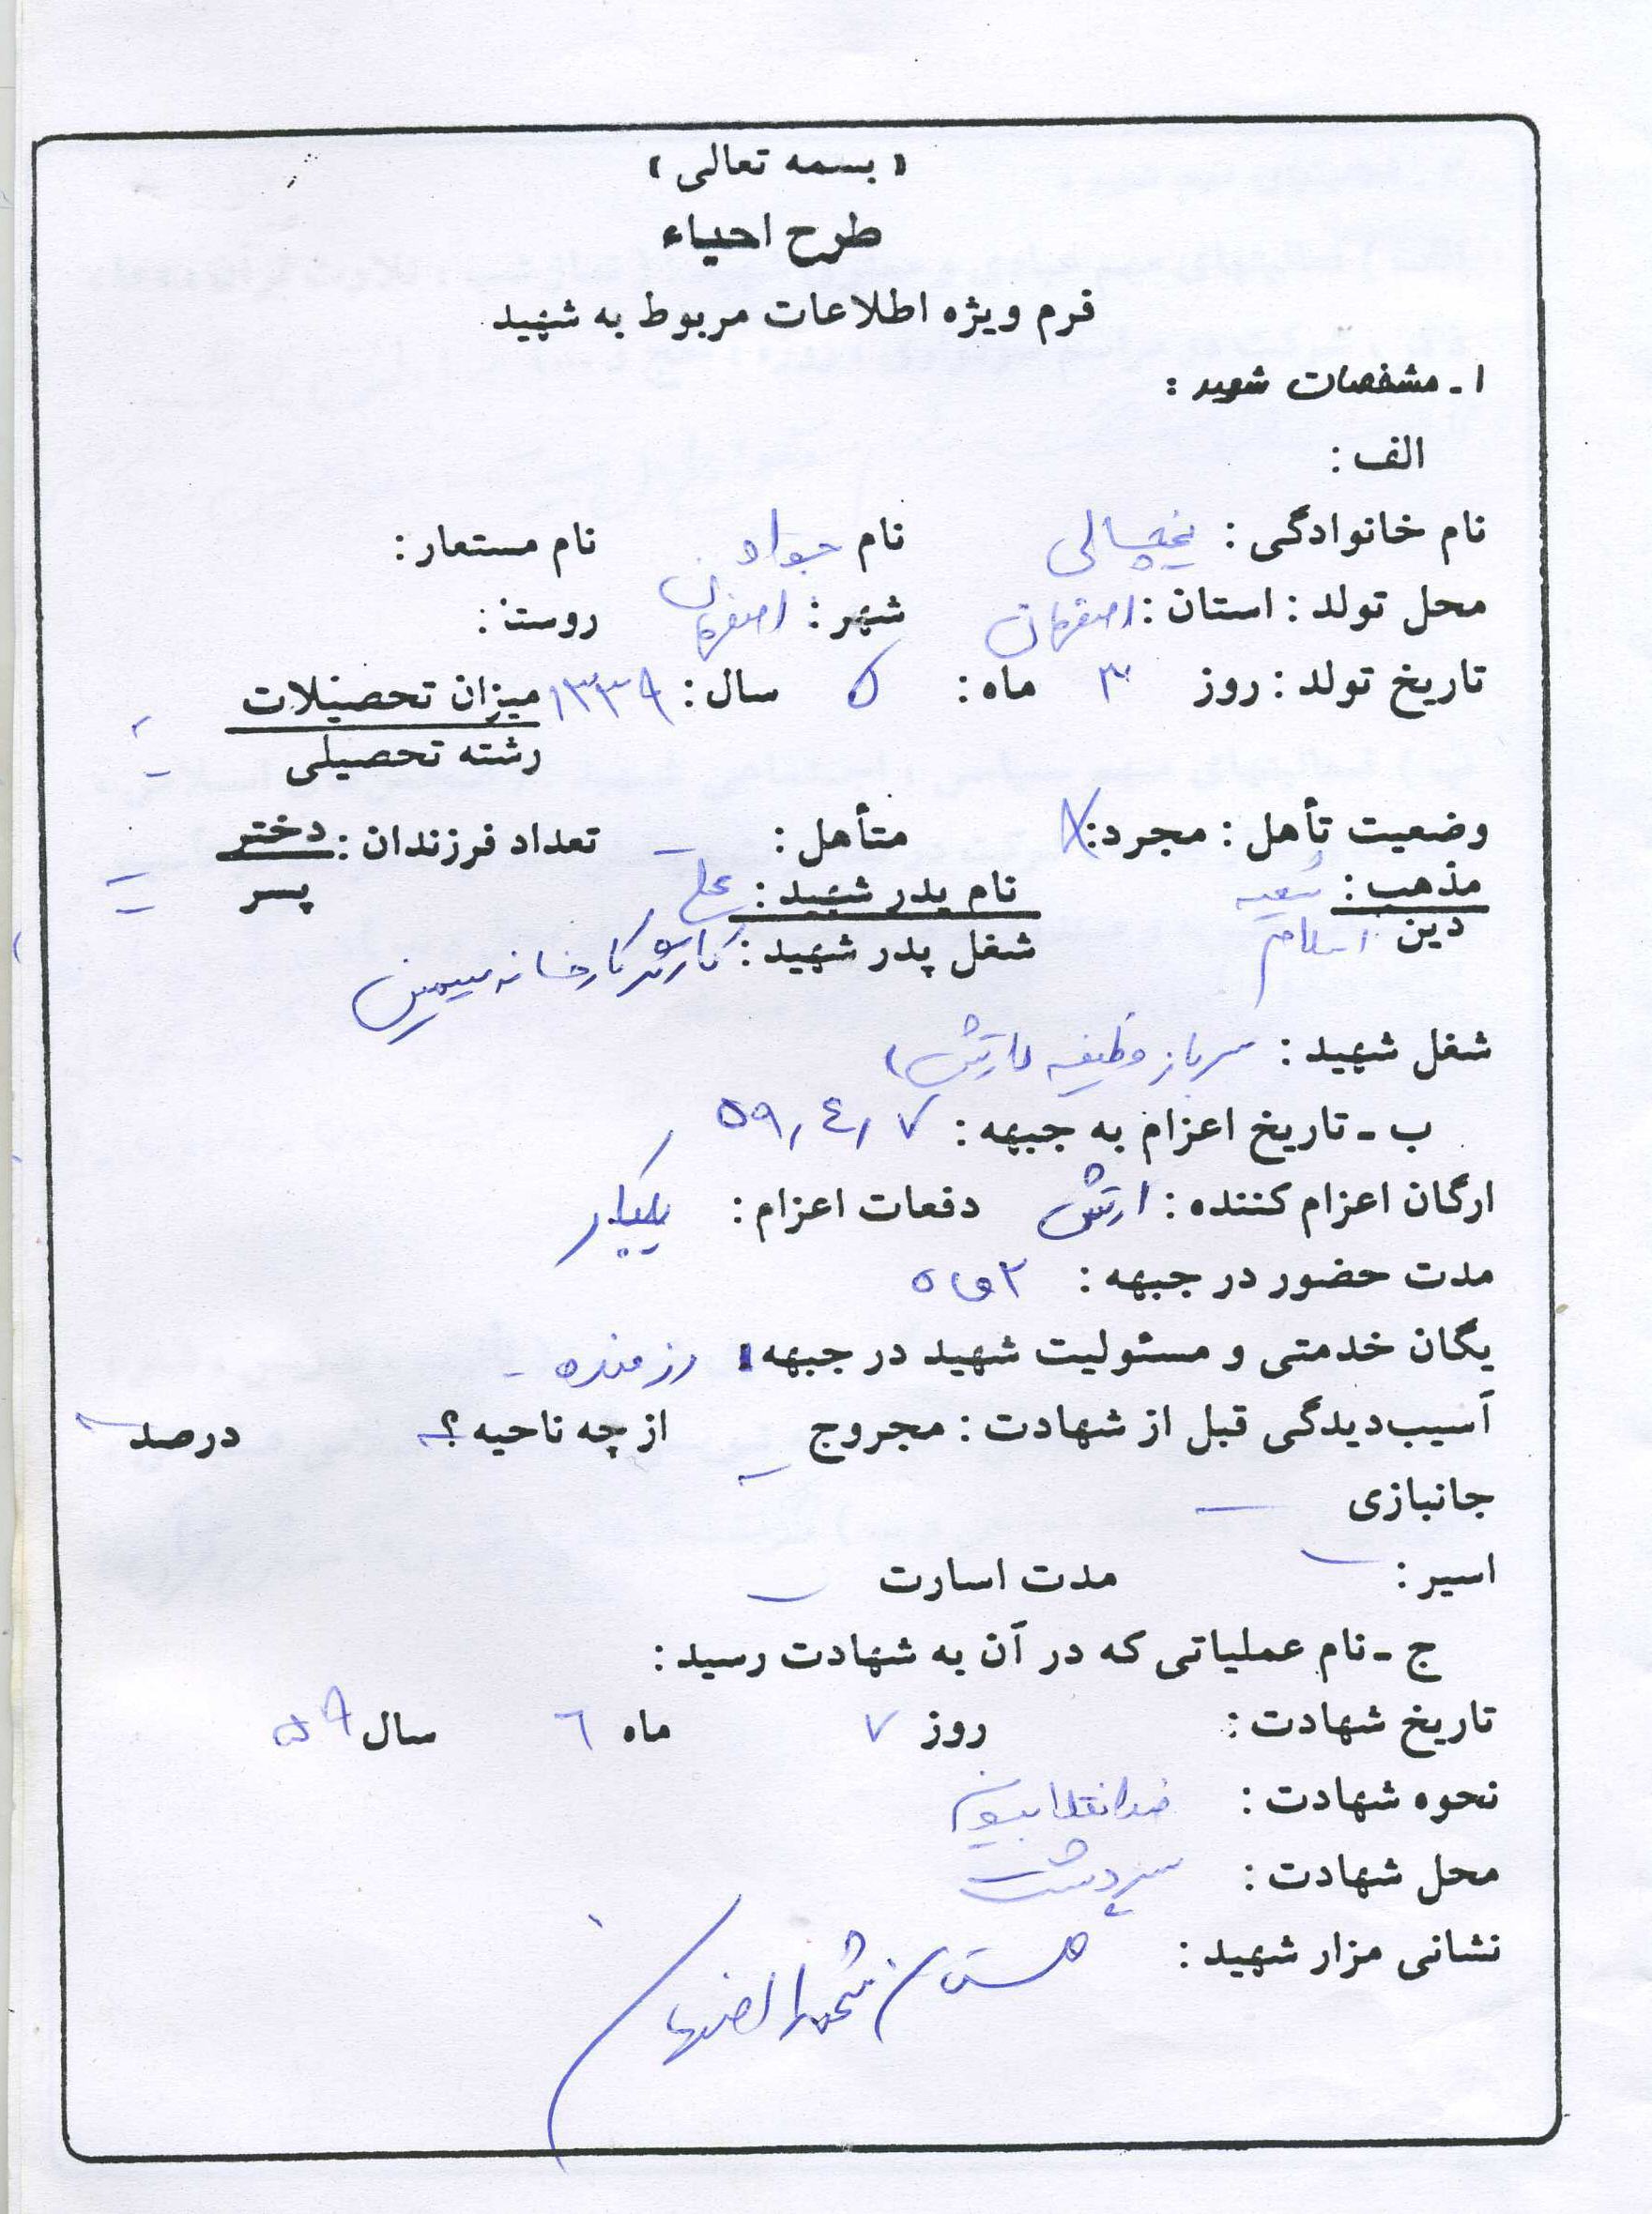 « بسمه تعالی »
طرح احیاء
فرم ویژه اطلاعات مربوط به شهید
۱ - مشخصات شهید :
الف :
نام خانوادگی : نام جواد نام مستعار :
محل تولد : استان : اصفهان شهر : اصفهان روستا :
تاریخ تولد : روز ۳ ماه : ۵ سال : ۱۳۳۹ میزان تحصیلات -
رشته تحصیلی -
وضعیت تأهل : مجرد : X متأهل : - تعداد فرزندان : دختر -
مذهب : شیعه نام پدر شهید : علی پسر -
دین اسلام شغل پدر شهید : کارگر کارخانه سیمین
شغل شهید : سرباز وظیفه (ارتش)
ب - تاریخ اعزام به جبهه : ۵۹/٤/۷
ارگان اعزام کننده : ارتش دفعات اعزام : یکبار
مدت حضور در جبهه : ۲ ماه
یگان خدمتی و مسئولیت شهید در جبهه : رزمنده -
آسیب‌دیدگی قبل از شهادت : مجروح - از چه ناحیه ؟ - درصد -
جانبازی -
اسیر : - مدت اسارت -
ج - نام عملیاتی که در آن به شهادت رسید :
تاریخ شهادت : روز ۷ ماه ٦ سال ۵۹
نحوه شهادت : ضدانقلابیون
محل شهادت : سردشت
نشانی مزار شهید : گلستان شهدا اصفهان